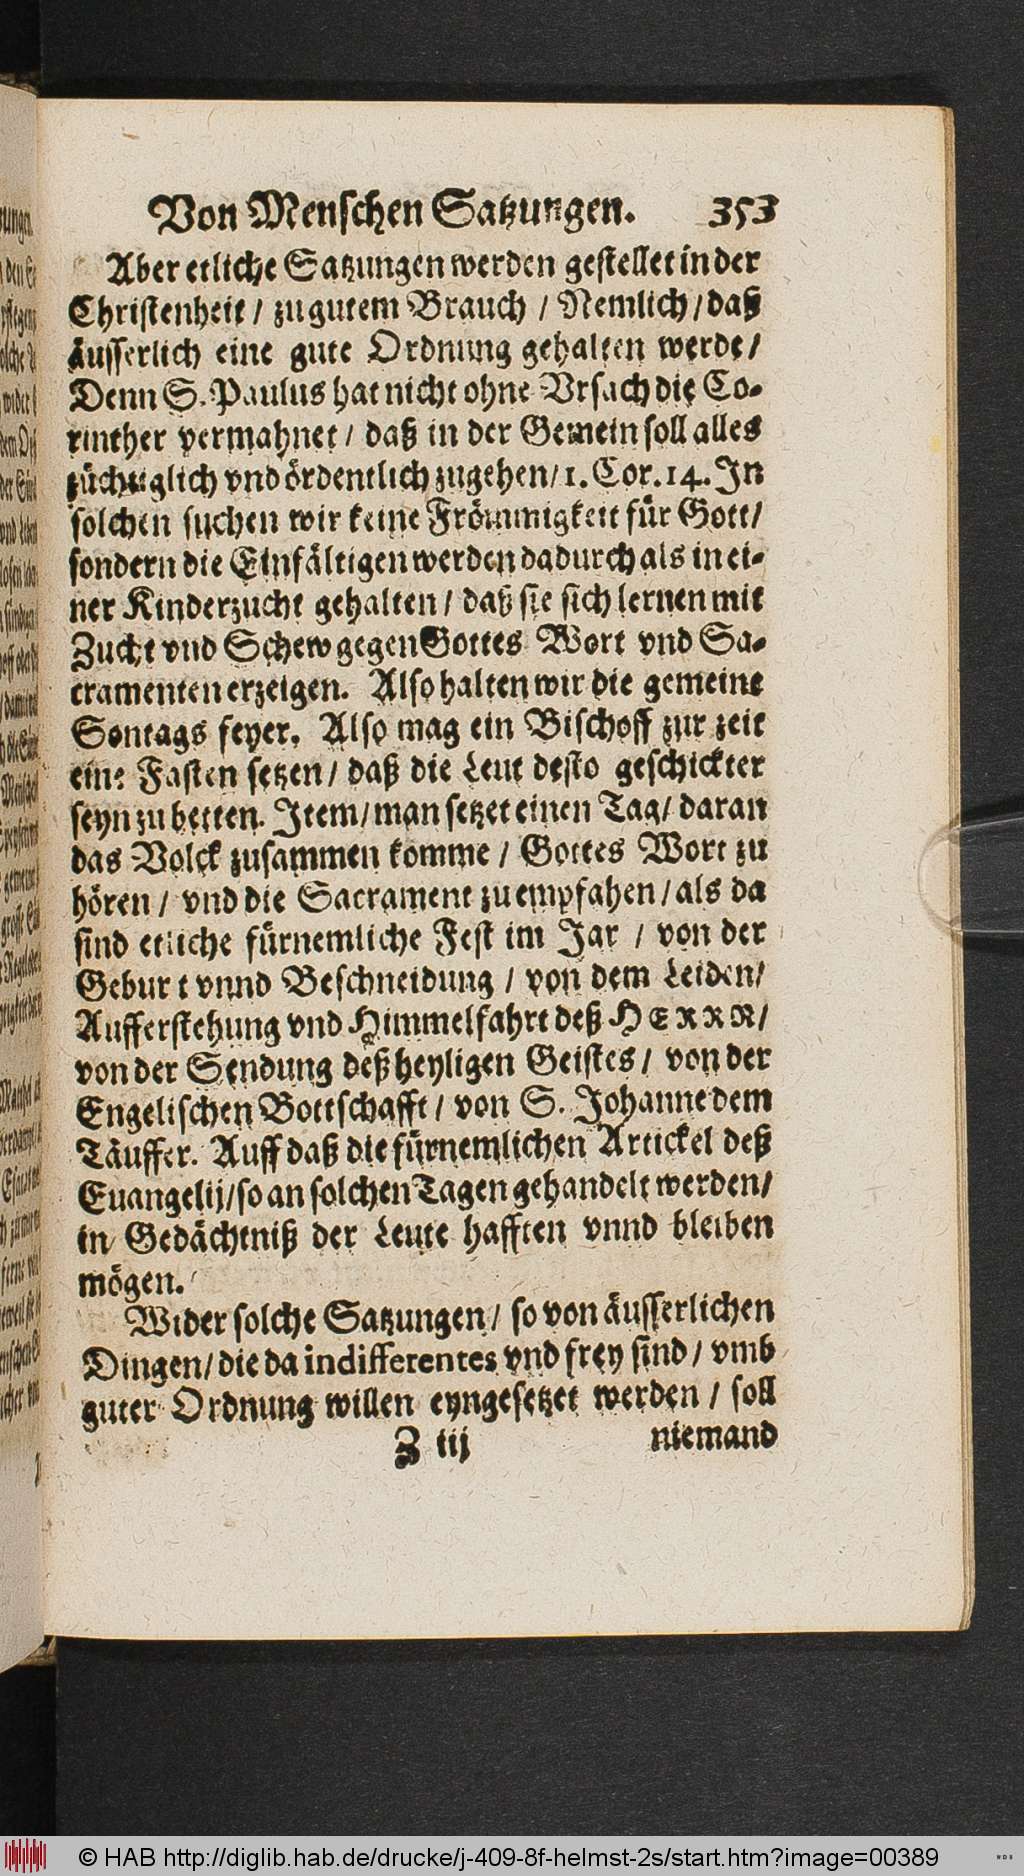 Von Menschen Satzungen. 353
Aber etliche Satzungen werden gestellet in der
Christenheit / zu gutem Brauch / Nemlich / daß
äusserlich eine gute Ordnung gehalten werde /
Denn S. Paulus hat nicht ohne Vrsach die Co-
rinther vermahnet / daß in der Gemein soll alles
züchtiglich vnd ördentlich zugehen / 1. Cor. 14. In
solchen suchen wir keine Frömmigkeit für Gott /
sondern die Einfältigen werden dadurch als in ei-
ner Kinderzucht gehalten / daß sie sich lernen mit
Zucht vnd Schew gegen Gottes Wort vnd Sa-
cramenten erzeigen. Also halten wir die gemeine
Sontags feyer. Also mag ein Bischoff zur zeit
eine Fasten setzen / daß die Leut desto geschickter
seyn zu betten. Item / man setzet einen Tag / daran
das Volck zusammen komme / Gottes Wort zu
hören / vnd die Sacrament zu empfahen / als da
sind etliche fürnemliche Fest im Jar / von der
Geburt vnnd Beschneidung / von dem Leiden /
Aufferstehung vnd Himmelfahrt deß HERRN /
von der Sendung deß heyligen Geistes / von der
Engelischen Bottschafft / von S. Johanne dem
Täuffer. Auff daß die fürnemlichen Artickel deß
Euangelij / so an solchen Tagen gehandelt werden /
in Gedächtniß der Leute hafften vnnd bleiben
mögen.
Wider solche Satzungen / so von äusserlichen
Dingen / die da indifferentes vnd frey sind / vmb
guter Ordnung willen eyngesetzet werden / soll
Z iij niemand
© HAB http://diglib.hab.de/drucke/j-409-8f-helmst-2s/start.htm?image=00389